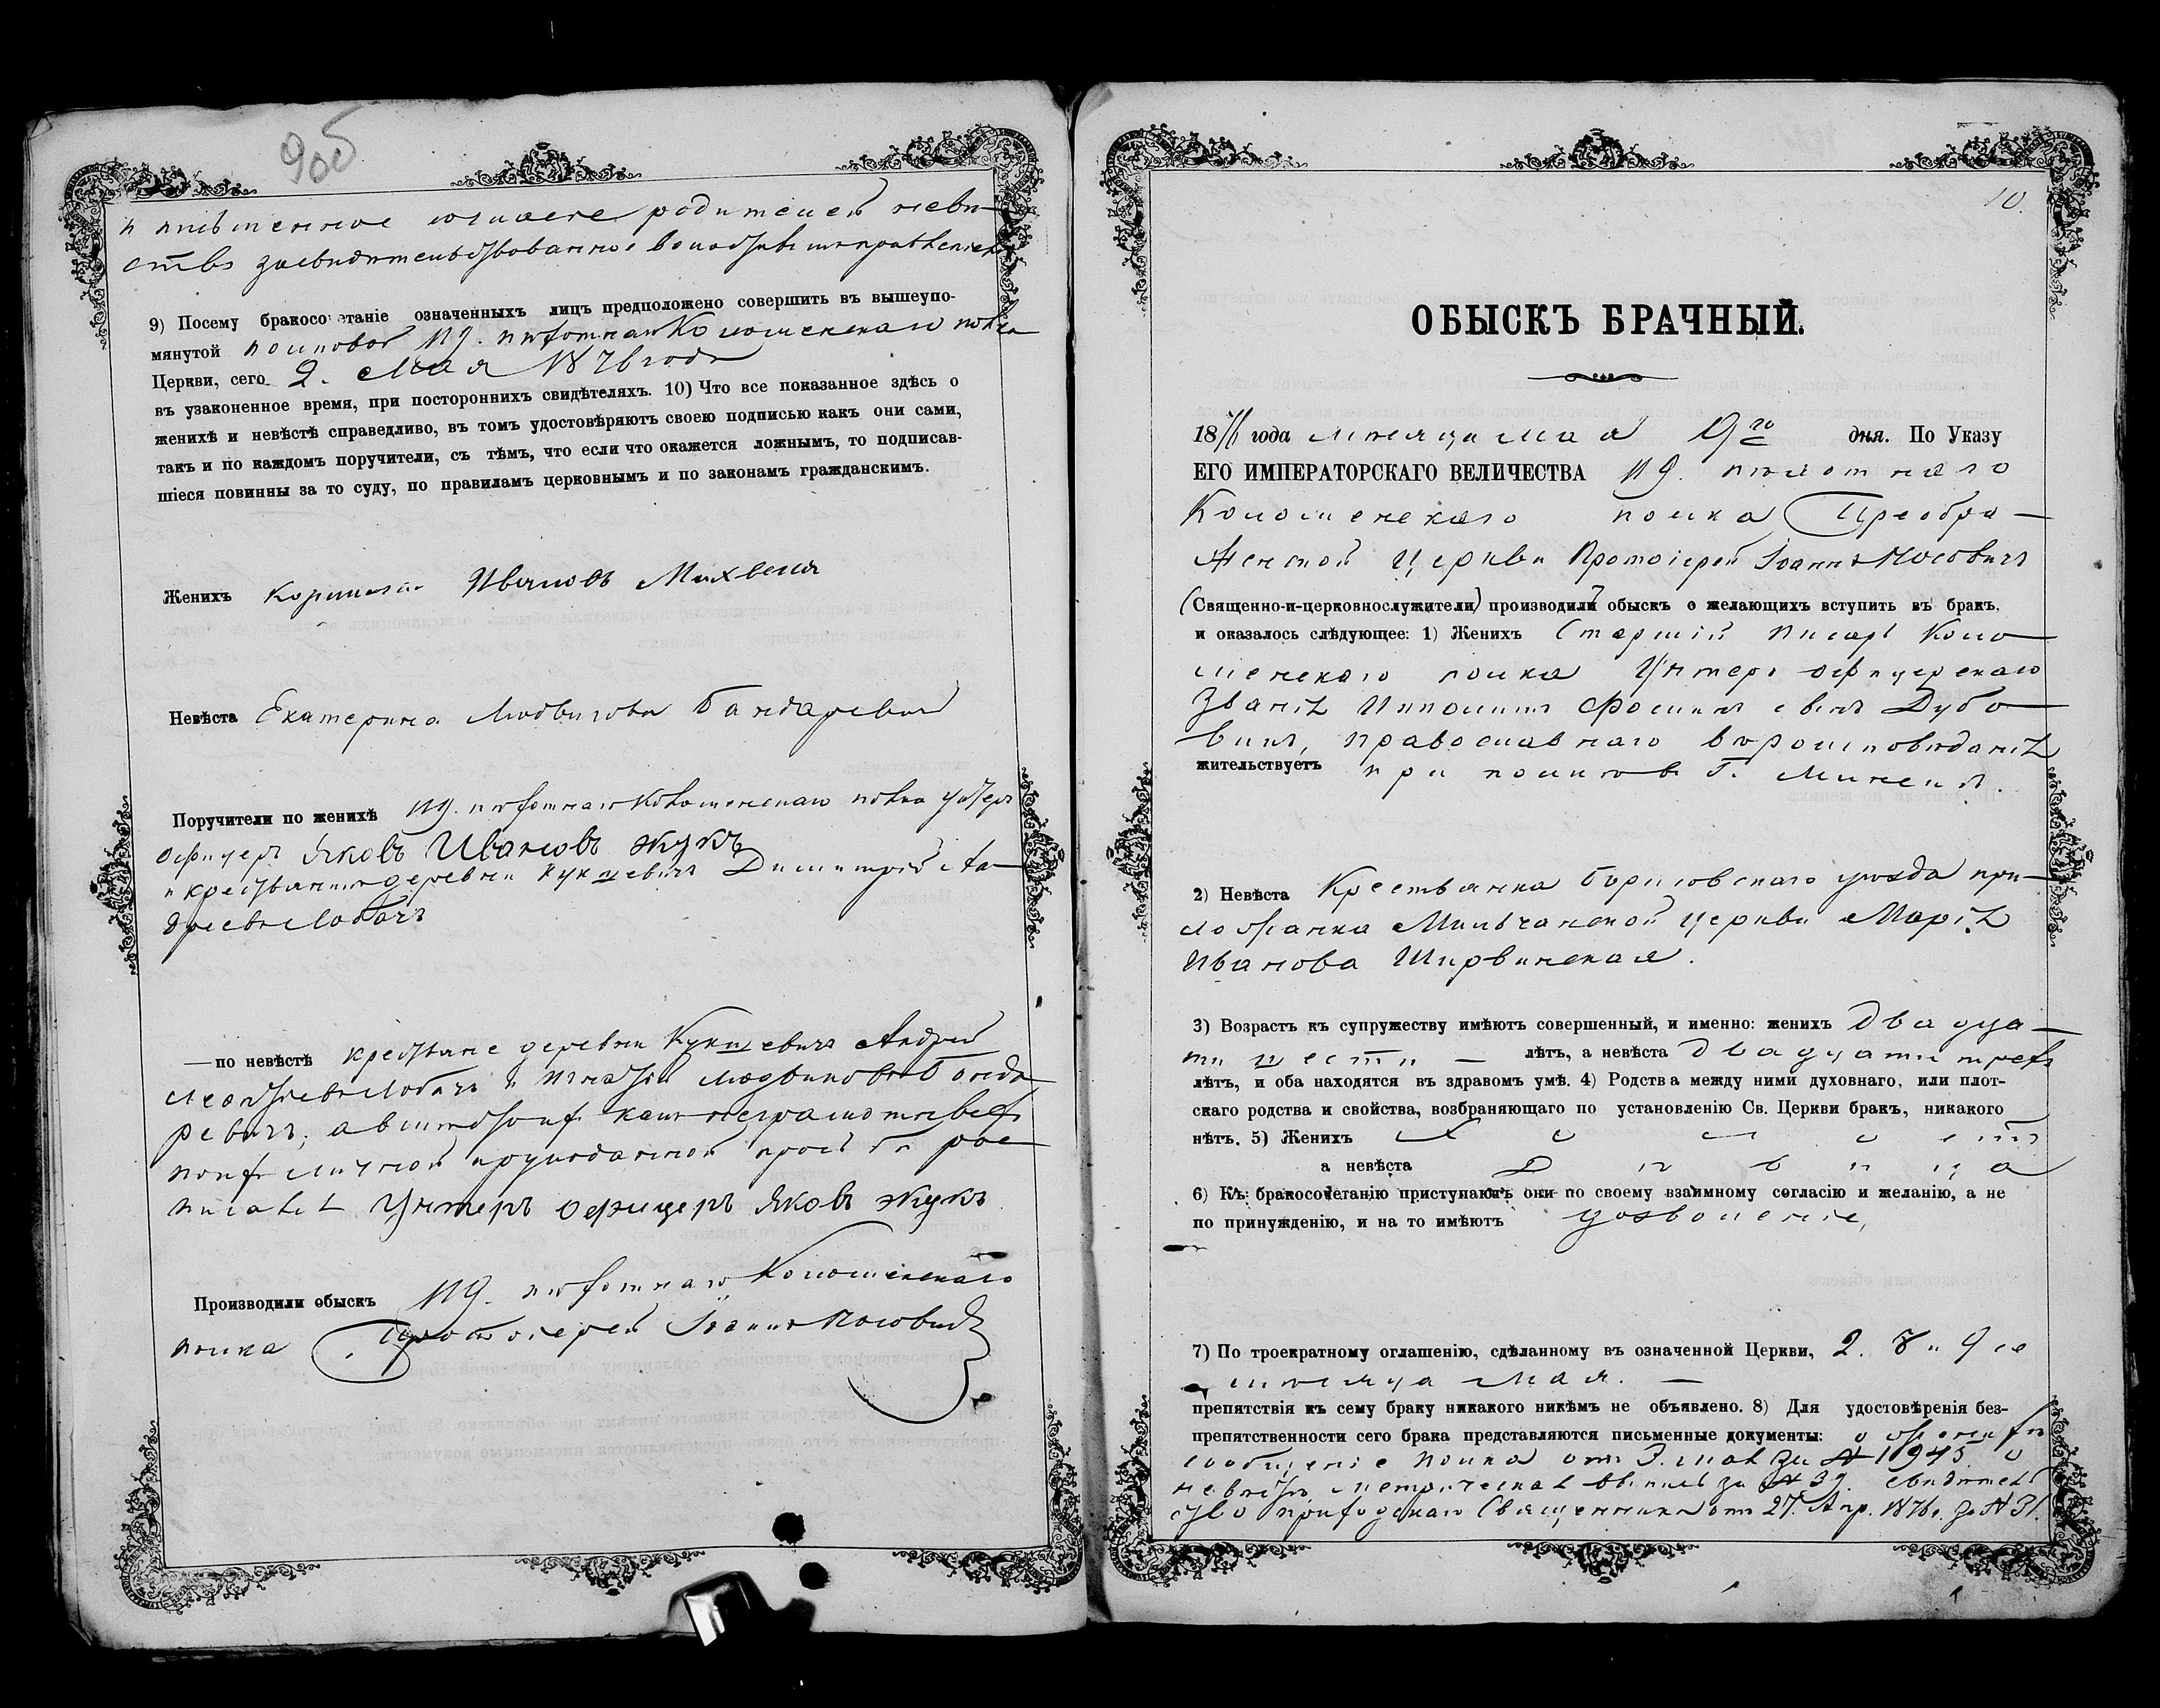 9об
и письменное согласіе родителей неве-
сты засвидетельствованное волостнымъ правленіемъ
9) Посему бракосочетаніе означенныхъ лицъ предположено совершить въ вышеупо-
мянутой полковой 119. пѣхотнаго Коломенскаго полка
Церкви, сего 2. Мая 1876 года
въ узаконенное время, при постороннихъ свидѣтеляхъ. 10) Что все показанное здѣсь о
женихѣ и невѣстѣ справедливо, въ томъ удостовѣряютъ своею подписью какъ они сами,
такъ и по каждомъ поручители, съ тѣмъ, что если что окажется ложнымъ, то подписав-
шіеся повинны за то суду, по правиламъ церковнымъ и по законамъ гражданскимъ.
Женихъ Ивановъ
Невѣста Екатерина Людвигова Бандаревичъ
Поручители по женихѣ 119. пѣхотнаго Коломенскаго полка Унтеръ
офицеръ Яковъ Ивановъ Жукъ
и крестьянинъ деревни Кукшевичъ Димитрій Ан-
дреевъ Лобачъ
—по невѣстѣ крестьяне деревни Кукшевичъ Андрей
Лобачъ и Игнатій Людвиковъ Банда-
ревичъ, а вместо ихъ какъ неграмотныхъ
по ихъ личной просьбѣ рос-
писался Унтеръ офицеръ Яковъ Жукъ
Производили обыскъ 119. пѣхотнаго Коломенскаго
полка Протоіерей Іоаннъ Носовичъ
10.
ОБЫСКЪ БРАЧНЫЙ.
1876 года мѣсяца мая 9го дня. По Указу
ЕГО ИМПЕРАТОРСКАГО ВЕЛИЧЕСТВА 119. пѣхотнаго
Коломенскаго полка Преобра-
женской Церкви Протоіерей Іоаннъ Носовичъ
(Священно-и-церковнослужители) производили обыскъ о желающихъ вступить въ бракъ,
и оказалось слѣдующее: 1) Женихъ Старшій писарь Коло-
менскаго полка Унтеръ офицерскаго
званія Ипполитъ Фоминъ сынъ Дубо-
викъ, православнаго вѣроисповѣданія
жительствуетъ при полкѣ въ г. Минскѣ.
2) Невѣста Крестьянка Борисовскаго уѣзда при-
хожанка Мильчанской церкви Марія
Иванова Ширвинская.
3) Возрастъ къ супружеству имѣютъ совершенный, и именно: женихъ двадца-
ти шести — лѣтъ, а невѣста двадцати трехъ
лѣтъ, и оба находятся въ здравомъ умѣ. 4) Родства между ними духовнаго, или плот-
скаго родства и свойства, возбраняющаго по установленію Св. Церкви бракъ, никакого
нѣтъ. 5) Женихъ холостъ
а невѣста дѣвица
6) Къ бракосочетанію приступаютъ они по своему взаимному согласію и желанію, а не
по принужденію, и на то имѣютъ дозволеніе,
7) По троекратному оглашенію, сдѣланному въ означенной Церкви, 2. 8 и 9 го
мѣсяца мая. —
препятствія къ сему браку никакого никѣмъ не объявлено. 8) Для удостовѣренія без-
препятственности сего брака представляются письменные документы: о женихѣ
сообщеніе полка отъ 3. мая за № 1945 о
невѣстѣ метрическая выпись за № 39. свидѣтель
ство приходскаго Священника отъ 27. Апр. 1876 г. за № 31.